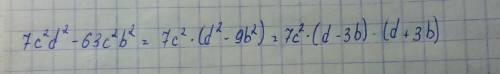 7c²d² - 63c²b² = 7c² · (d² - 9b²) = 7c² · (d - 3b) · (d + 3b)